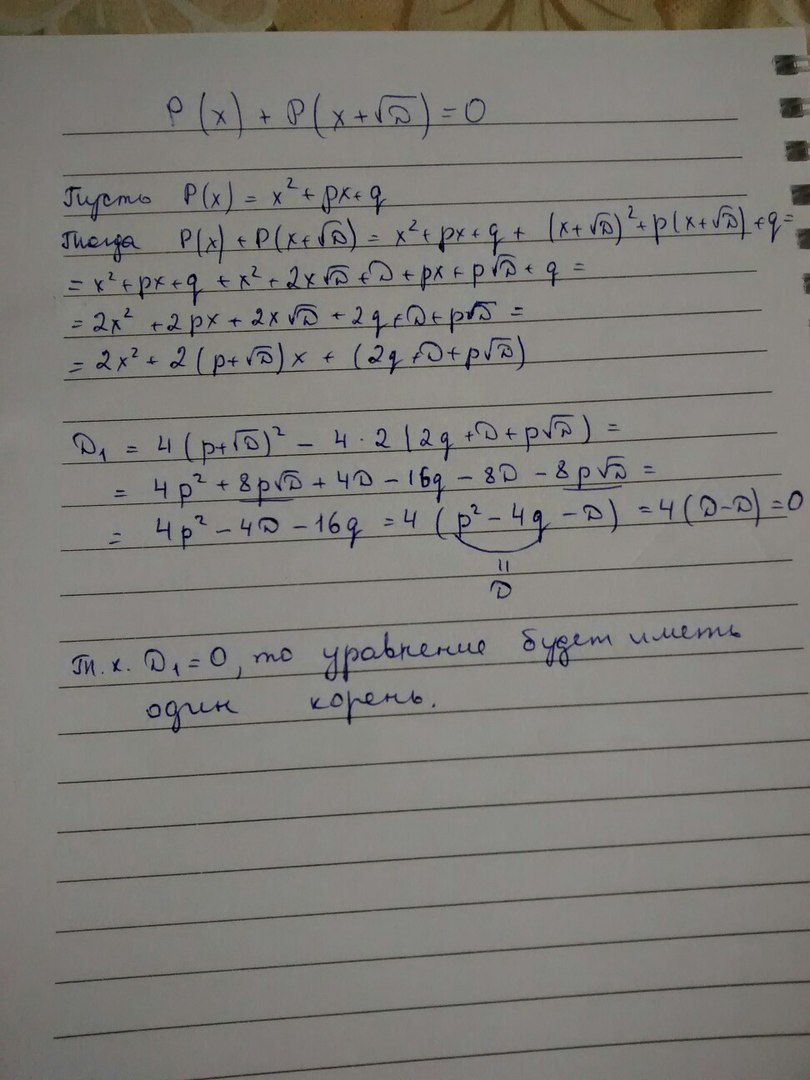 P(x) + P(x+√D) = 0
Пусть P(x) = x² + px + q
Тогда P(x) + P(x+√D) = x² + px + q + (x+√D)² + p(x+√D) + q =
= x² + px + q + x² + 2x√D + D + px + p√D + q =
= 2x² + 2px + 2x√D + 2q + D + p√D =
= 2x² + 2(p+√D)x + (2q + D + p√D)
D₁ = 4(p+√D)² − 4 · 2(2q + D + p√D) =
= 4p² + 8p√D + 4D − 16q − 8D − 8p√D =
= 4p² − 4D − 16q = 4(p² − 4q − D) = 4(D−D) = 0
=
D
Т.к. D₁ = 0, то уравнение будет иметь
один корень.